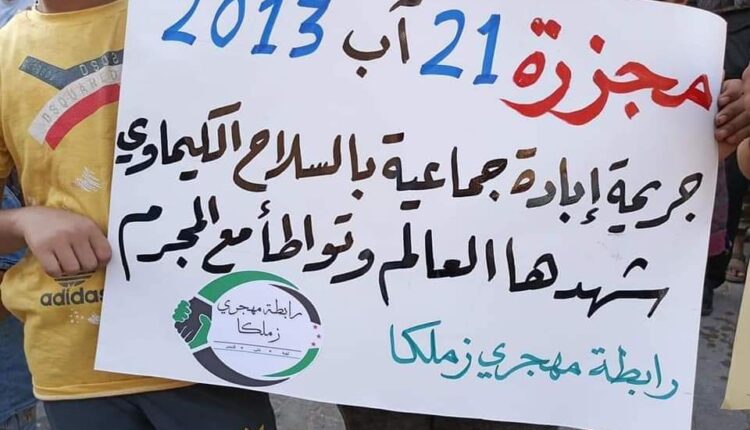 مجزرة 21 آب 2013
جريمة إبادة جماعية بالسلاح الكيماوي
شهدها العالم وتواطأ مع المجرم
رابطة مهجري زملكا
رابطة مهجري
زملكا
DSQUARED
adidas